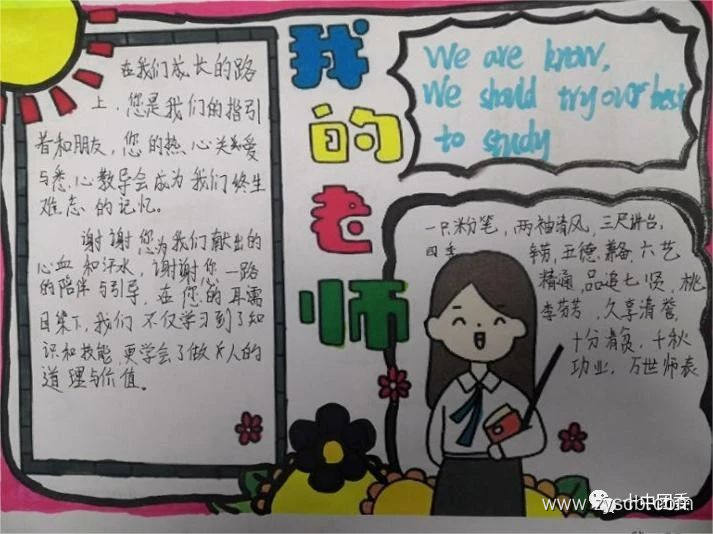 我的老师
在我们成长的路
上,您是我们的指引
者和朋友,您的热心关爱
与悉心教导会成为我们终生
难忘的记忆。
谢谢您为我们献出的
心血和汗水,谢谢您一路
的陪伴与引导,在您的耳濡
目染下,我们不仅学习到了知
识和技能,更学会了做人的
道理与价值。
We are know,
We should try over best
to study
一只粉笔,两袖清风,三尺讲台,
四季
五德兼备,六艺
精通,品追七贤,桃
李芬芳,久享清誉,
十分,千秋
功业,万世师表
www.zyscbl.com